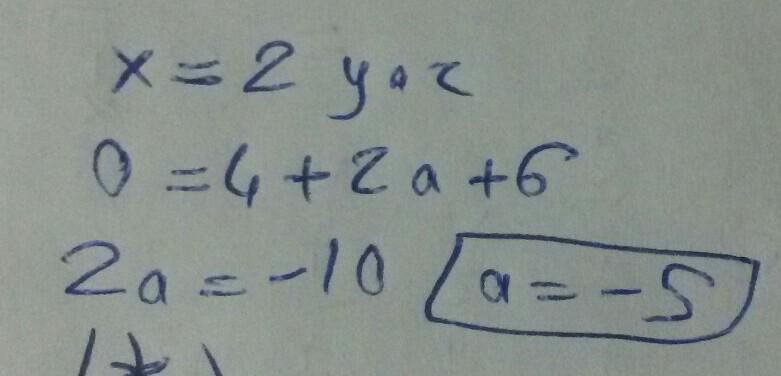 x = 2 yaz
0 = 4 + 2a + 6
2a = -10 a = -5